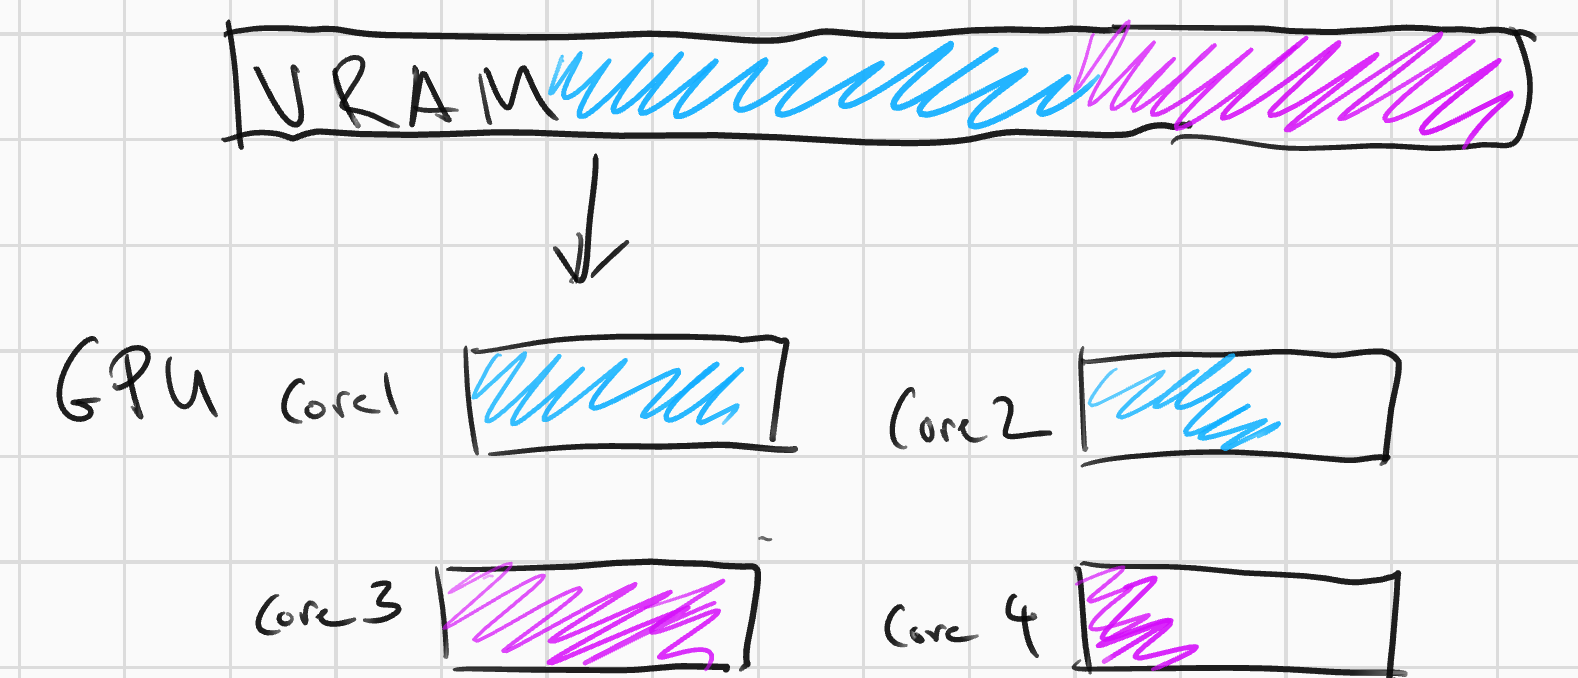 VRAM
GPU Core1 Core2
Core 3 Core 4